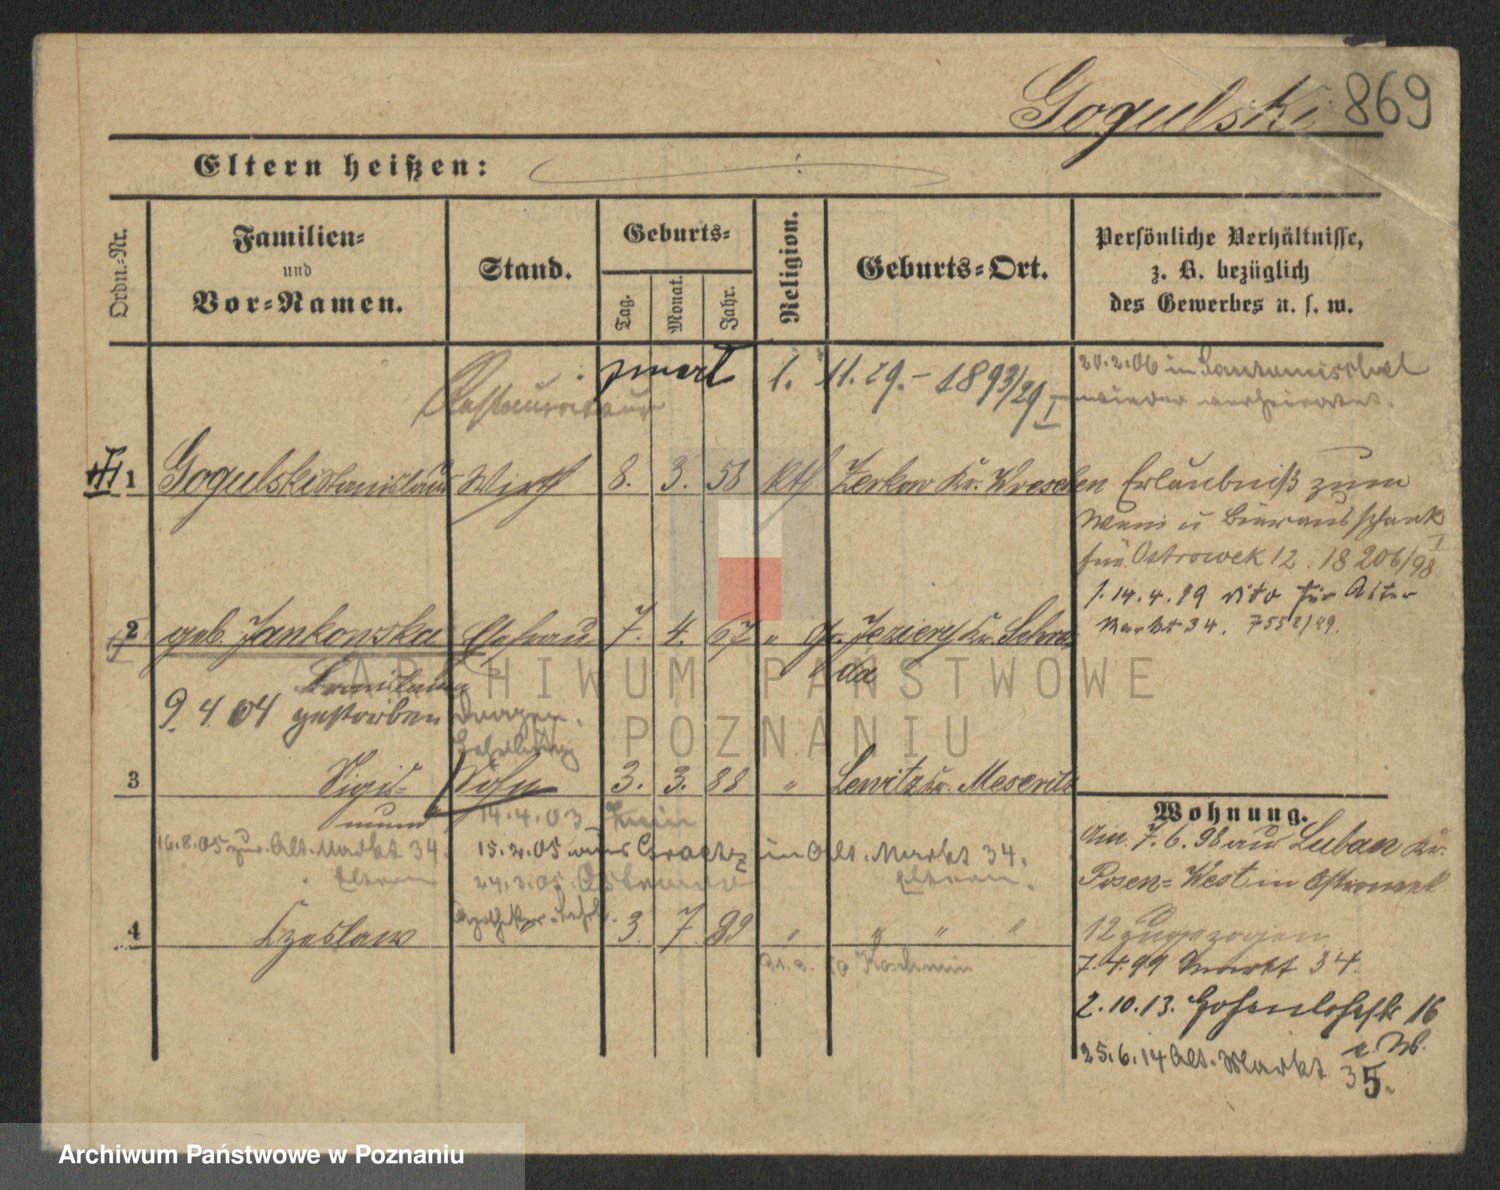 Gogulski 869
Eltern heißen:
Ordn.-Nr.
Familien-
und
Vor-Namen.
Stand.
Geburts-
Tag.
Monat.
Jahr.
Religion.
Geburts-Ort.
Persönliche Verhältnisse,
z. B. bezüglich
des Gewerbes u. s. w.
Restaurateur
1. 11. 29. - 1893/29 I
20.2.06 in Santomischel
wieder verheiratet.
1 Gogulski Stanislaus Wirth 8. 3. 58 kth Zerkow Kr. Wreschen
Erlaubniß zum
Wein u Bierausschank
für Ostrowek 12. 18206/98 I
1.14.4.99 dito für Alter
Markt 34. 7552/99.
2 geb. Jankowska Ehefrau 7. 4. 67 " Gr. Jeziery Kr. Schro-
da
Bronislawa
9.4.04 gestorben
3 Sigis- Sohn 3. 3. 88 " Lewitz Kr. Meseritz
mund
14.4.03
16.8.05 zur. Alt. Markt 34.
Eltern
15.2.05 aus Graetz in Alt. Markt 34.
Eltern.
24.3.05.
4 Czeslaw Apotheker-Lehrl. 3. 7. 89 " " " "
Koschmin
Wohnung.
Am 7.6.98 aus Luban Kr.
Posen-West in Ostrowek
12 zugezogen
7.4.99 Markt 34.
2.10.13. Hohenlohestr 16
25.6.14 Alt. Markt 35.
ARCHIWUM PAŃSTWOWE
POZNANIU
Archiwum Państwowe w Poznaniu